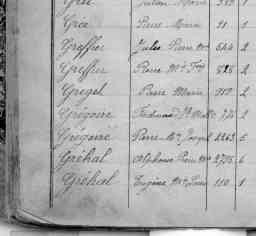 Julien Marie
Gréé Pierre Marie 11 1
Greffier Jules Pierre Mie 544 2
Greffier Pierre Mie Fçs 828 2
Gregel Pierre Marie 919 2
Grégoire Ferdinand 2
Grégoire Pierre Mie Joseph 2263 5
Gréhal Alphonse Pierre Mie 2775 6
Gréhal Eugène Mie Louis 110 1